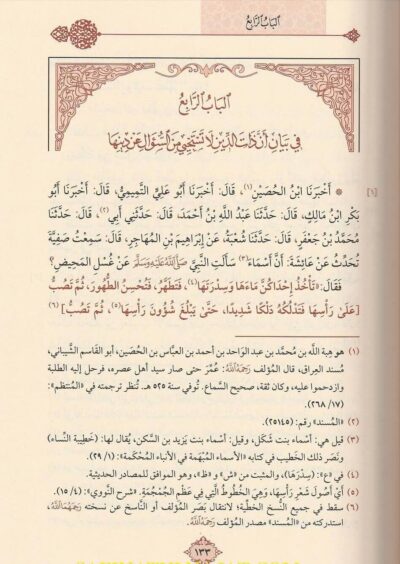 البَابُ الرَّابِعُ
البَابُ الرَّابِعُ
فِي بَيَانِ أَنَّ ذَاتَ الدِّينِ لَا تَسْتَحْيِي مِنَ السُّؤَالِ عَنْ دِينِهَا
[٤] * أَخْبَرَنَا ابْنُ الحُصَيْنِ(١)، قَالَ: أَخْبَرَنَا أَبُو عَلِيٍّ التَّمِيمِيُّ، قَالَ: أَخْبَرَنَا أَبُو
بَكْرِ ابْنُ مَالِكٍ، قَالَ: حَدَّثَنَا عَبْدُ اللَّهِ بْنُ أَحْمَدَ، قَالَ: حَدَّثَنِي أَبِي(٢)، قَالَ: حَدَّثَنَا
مُحَمَّدُ بْنُ جَعْفَرٍ، قَالَ: حَدَّثَنَا شُعْبَةُ، عَنْ إِبْرَاهِيمَ بْنِ المُهَاجِرِ، قَالَ: سَمِعْتُ صَفِيَّةَ
تُحَدِّثُ عَنْ عَائِشَةَ: أَنَّ أَسْمَاءَ(٣) سَأَلَتِ النَّبِيَّ ﷺ عَنْ غُسْلِ المَحِيضِ؟
فَقَالَ: «تَأْخُذُ إِحْدَاكُنَّ مَاءَهَا وَسِدْرَتَهَا(٤)، فَتَطَهَّرُ، فَتُحْسِنُ الطُّهُورَ، ثُمَّ تَصُبُّ
[عَلَى رَأْسِهَا فَتَدْلُكُهُ دَلْكًا شَدِيدًا، حَتَّى يَبْلُغَ شُؤُونَ رَأْسِهَا(٥)، ثُمَّ تَصُبُّ](٦)
(١) هو هبة الله بن مُحمَّد بن عبد الواحد بن أحمد بن العبَّاس بن الحُصَين، أبو القاسم الشَّيباني،
مُسند العِراق، قال المُؤلف رَحِمَهُ اللَّهُ: عُمِّرَ حتى صار سيد أهل عصره، فرحل إليه الطلبة
وازدحموا عليه، وكان ثقة، صحيح السَّماع. تُوفي سنة ٥٢٥ هـ. تُنظر ترجمته في «المُنتظم»:
(١٧/ ٢٦٨).
(٢) «المُسند» رقم: (٢٥١٤٥).
(٣) قيل هي: أسْماء بنت شَكَل، وقيل: أسْماء بنت يَزيد بن السَّكن، يُقال لها: (خَطِيبة النِّساء)
ونَصَر ذلك الخَطيب في كتابه «الأسماء المُبْهَمة في الأنباء المُحْكَمة»: (١/ ٢٩).
(٤) في «ع»: (سِدْرَهَا)، والمثبت من «ش» و «ظ»، وهو الموافق للمصادر الحديثية.
(٥) أَيْ أُصُولَ شَعْرِ رَأْسِهَا، وَهِيَ الخُطُوطُ الَّتِي فِي عَظْمِ الجُمْجُمَةِ. «شرح النَّووي»: (٤/ ١٥).
(٦) سقط في جميع النُّسخ الخَطِّية؛ لانتقال بَصَر المُؤلف أو النَّاسخ عن نسخته رَحِمَهُمَا اللَّهُ،
استدركته من «المُسند» مصدر المُؤلف رَحِمَهُ اللَّهُ.
١٣٣